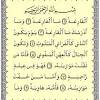 بِسْمِ اللَّهِ الرَّحْمَٰنِ الرَّحِيمِ
الْقَارِعَةُ مَا الْقَارِعَةُ وَمَا
أَدْرَاكَ مَا الْقَارِعَةُ يَوْمَ يَكُونُ
النَّاسُ كَالْفَرَاشِ الْمَبْثُوثِ وَتَكُونُ
الْجِبَالُ كَالْعِهْنِ الْمَنْفُوشِ فَأَمَّا مَنْ
ثَقُلَتْ مَوَازِينُهُ فَهُوَ فِي عِيشَةٍ
رَاضِيَةٍ وَأَمَّا مَنْ خَفَّتْ
مَوَازِينُهُ فَأُمُّهُ هَاوِيَةٌ وَمَا
أَدْرَاكَ مَا هِيَهْ نَارٌ حَامِيَةٌ